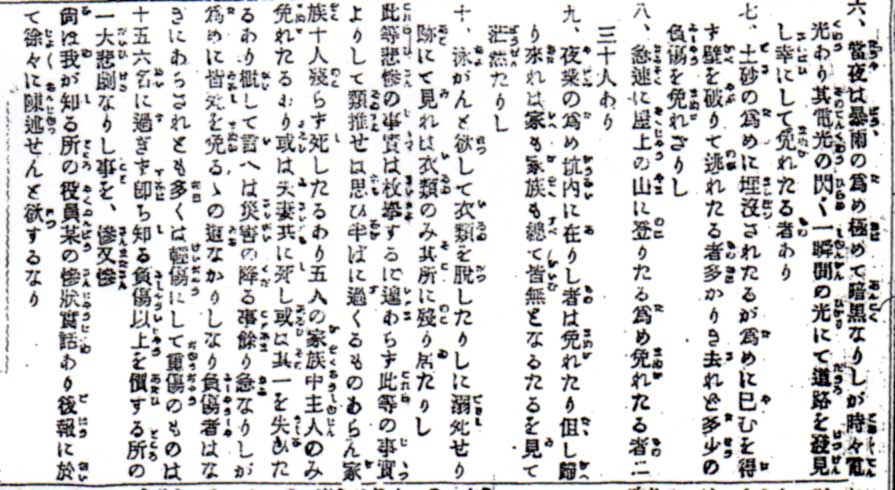 六、當夜は暴雨の爲め極めて暗黒なりしが時々電
光わり其電光の閃く一瞬間の光にて道路を發見
し幸にして免れたる者あり
七、土砂の爲めに埋沒されたるが爲めに已むを得
ず壁を破りて逃れたる者多かりき去れど多少の
負傷を免れざりし
八、急速に屋上の山に登りたる爲め免れたる者二
三十人あり
九、夜業の爲め抗内に在りし者は免れたり但し歸
り來れは家も家族も總て皆無となるたるを見て
茫然たりし
十、泳がんと欲して衣類を脱したりしに溺死せり
跡にて見れは衣類のみ其所に殘り居たりし
此等悲慘の事實は枚擧するに遑わらず此等の事實
よりして類推せは思ひ半ばに過くるものあらん家
族十人殘らず死したるあり五人の家族中主人のみ
免れたるあり或は夫妻共に死し或は其一を失ひた
るあり概して言へは災害の降る事餘り急なりしが
爲めに皆死を免るゝの遑なかりしなり負傷者はな
きにあらされとも多くは輕傷にして重傷のものは
十五六名に過ぎず卽ち知る負傷以上を價する所の
一大悲劇なりし事を、慘又慘
尙ほ我が知る所の役員某の慘狀實話わり後報に於
て徐々に陳述せんと欲するなり